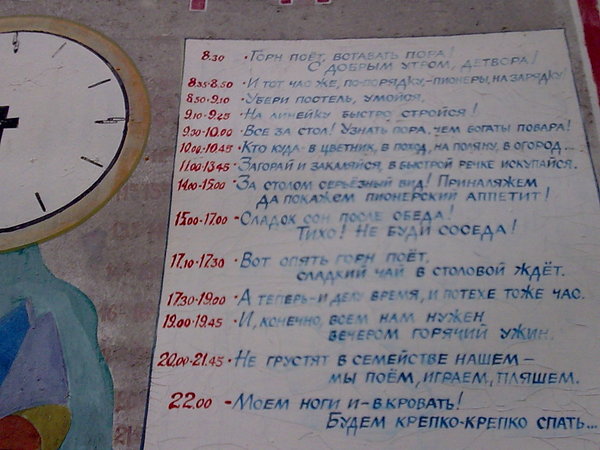 8.30 • Горн поёт, вставать пора!
С добрым утром, детвора!
8.35-8.50 • И тот час же, по-порядку,-пионеры, на зарядку!
8.50-9.10 • Убери постель, умойся,
9.10-9.25 • На линейку быстро стройся!
9.30-10.00 • Все за стол! Узнать пора, чем богаты повара!
10.00-10.45 • Кто куда: в цветник, в поход, на поляну, в огород...
11.00-13.45 • Загорай и закаляйся, в быстрой речке искупайся.
14.00-15.00 • За столом серьёзный вид! Приналяжем
да покажем пионерский аппетит!
15.00-17.00 • Сладок сон после обеда!
Тихо! Не буди соседа!
17.10-17.30 • Вот опять горн поёт,
сладкий чай в столовой ждёт.
17.30-19.00 • А теперь-и делу время, и потехе тоже час.
19.00-19.45 • И, конечно, всем нам нужен
вечером горячий ужин.
20.00-21.45 • Не грустят в семействе нашем –
мы поём, играем, пляшем.
22.00 - Моем ноги и-в кровать!
Будем крепко-крепко спать...